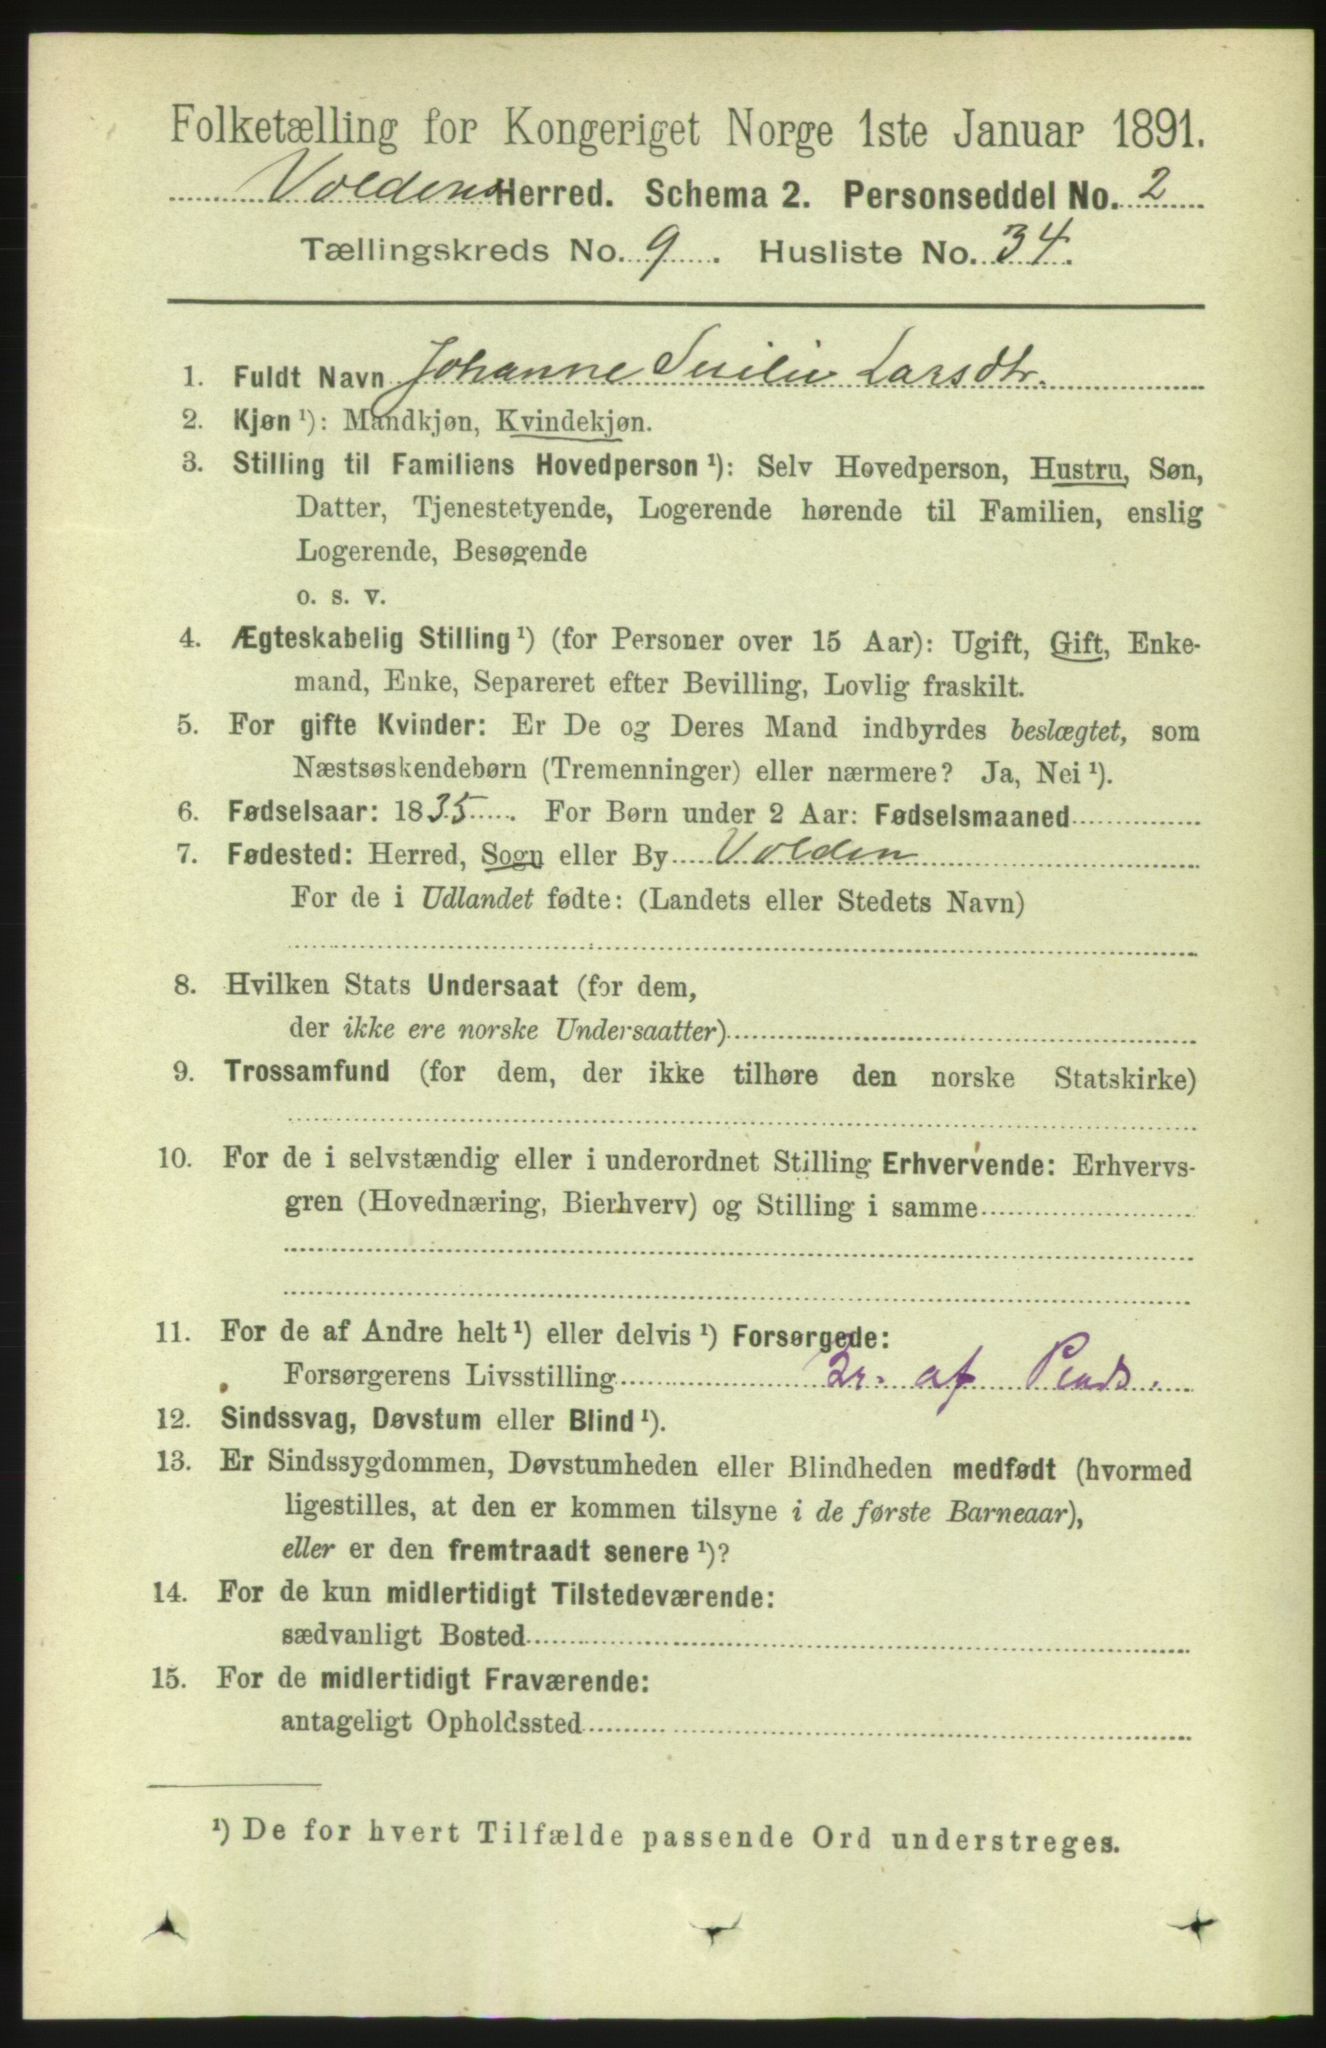 Folketælling for Kongeriget Norge 1ste Januar 1891.
Voldens Herred. Schema 2. Personseddel No. 2
Tællingskreds No. 9. Husliste No. 34.
1. Fuldt Navn Johanne Larsdtr.
2. Kjøn ¹): Mandkjøn, Kvindekjøn.
3. Stilling til Familiens Hovedperson ¹): Selv Hovedperson, Hustru, Søn,
Datter, Tjenestetyende, Logerende hørende til Familien, enslig
Logerende, Besøgende
o. s. v.
4. Ægteskabelig Stilling ¹) (for Personer over 15 Aar): Ugift, Gift, Enke-
mand, Enke, Separeret efter Bevilling, Lovlig fraskilt.
5. For gifte Kvinder: Er De og Deres Mand indbyrdes beslægtet, som
Næstsøskendebørn (Tremenninger) eller nærmere? Ja, Nei ¹).
6. Fødselsaar: 1835. For Børn under 2 Aar: Fødselsmaaned
7. Fødested: Herred, Sogn eller By Volden
For de i Udlandet fødte: (Landets eller Stedets Navn)
8. Hvilken Stats Undersaat (for dem,
der ikke ere norske Undersaatter)
9. Trossamfund (for dem, der ikke tilhøre den norske Statskirke)
10. For de i selvstændig eller i underordnet Stilling Erhvervende: Erhvervs-
gren (Hovednæring, Bierhverv) og Stilling i samme
11. For de af Andre helt ¹) eller delvis ¹) Forsørgede:
Forsørgerens Livsstilling af
12. Sindssvag, Døvstum eller Blind ¹).
13. Er Sindssygdommen, Døvstumheden eller Blindheden medfødt (hvormed
ligestilles, at den er kommen tilsyne i de første Barneaar),
eller er den fremtraadt senere ¹)?
14. For de kun midlertidigt Tilstedeværende:
sædvanligt Bosted
15. For de midlertidigt Fraværende:
antageligt Opholdssted
¹) De for hvert Tilfælde passende Ord understreges.